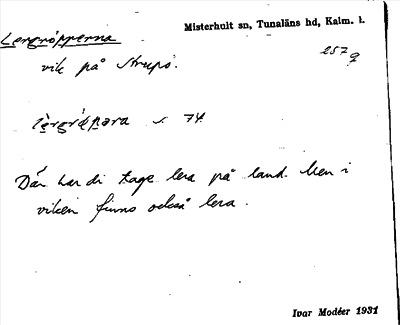 Misterhult sn, Tunaläns hd, Kalm. l.
Lergröpperna
257 g
vik på Strupö.
s. 74.
Där har di tage lera på land. Men i
viken finns också lera.
Ivar Modéer 1931